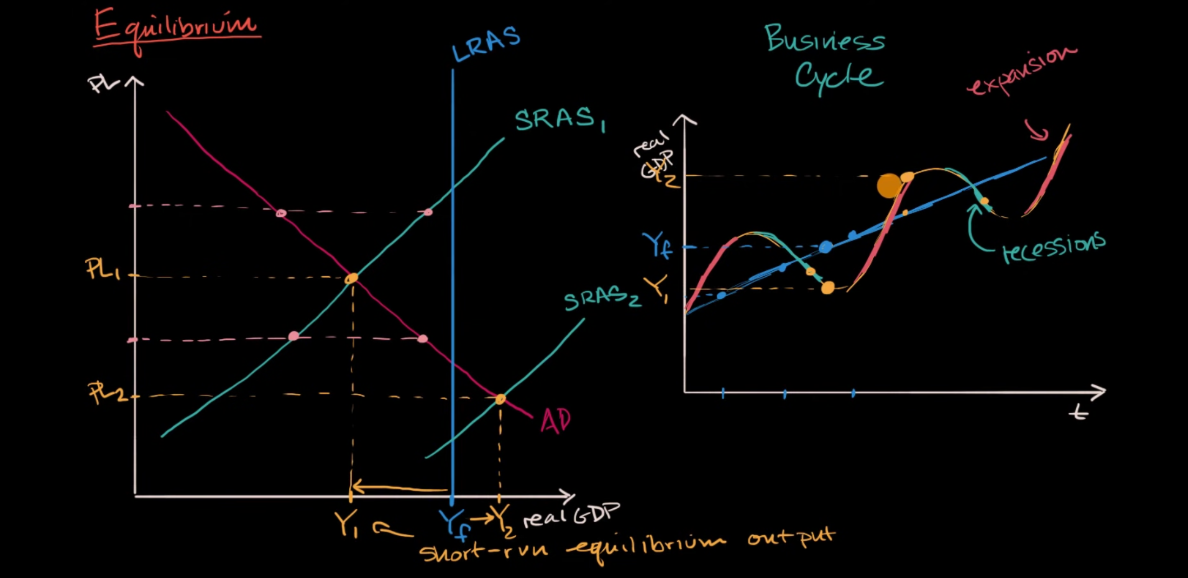 Equilibrium
PL
LRAS
SRAS₁
PL₁
SRAS₂
PL₂
AD
Y₁
Yf → Y₂
real GDP
short-run equilibrium output
Business
Cycle
expansion
real
GDP
Y₂
Yf
Y₁
recessions
t